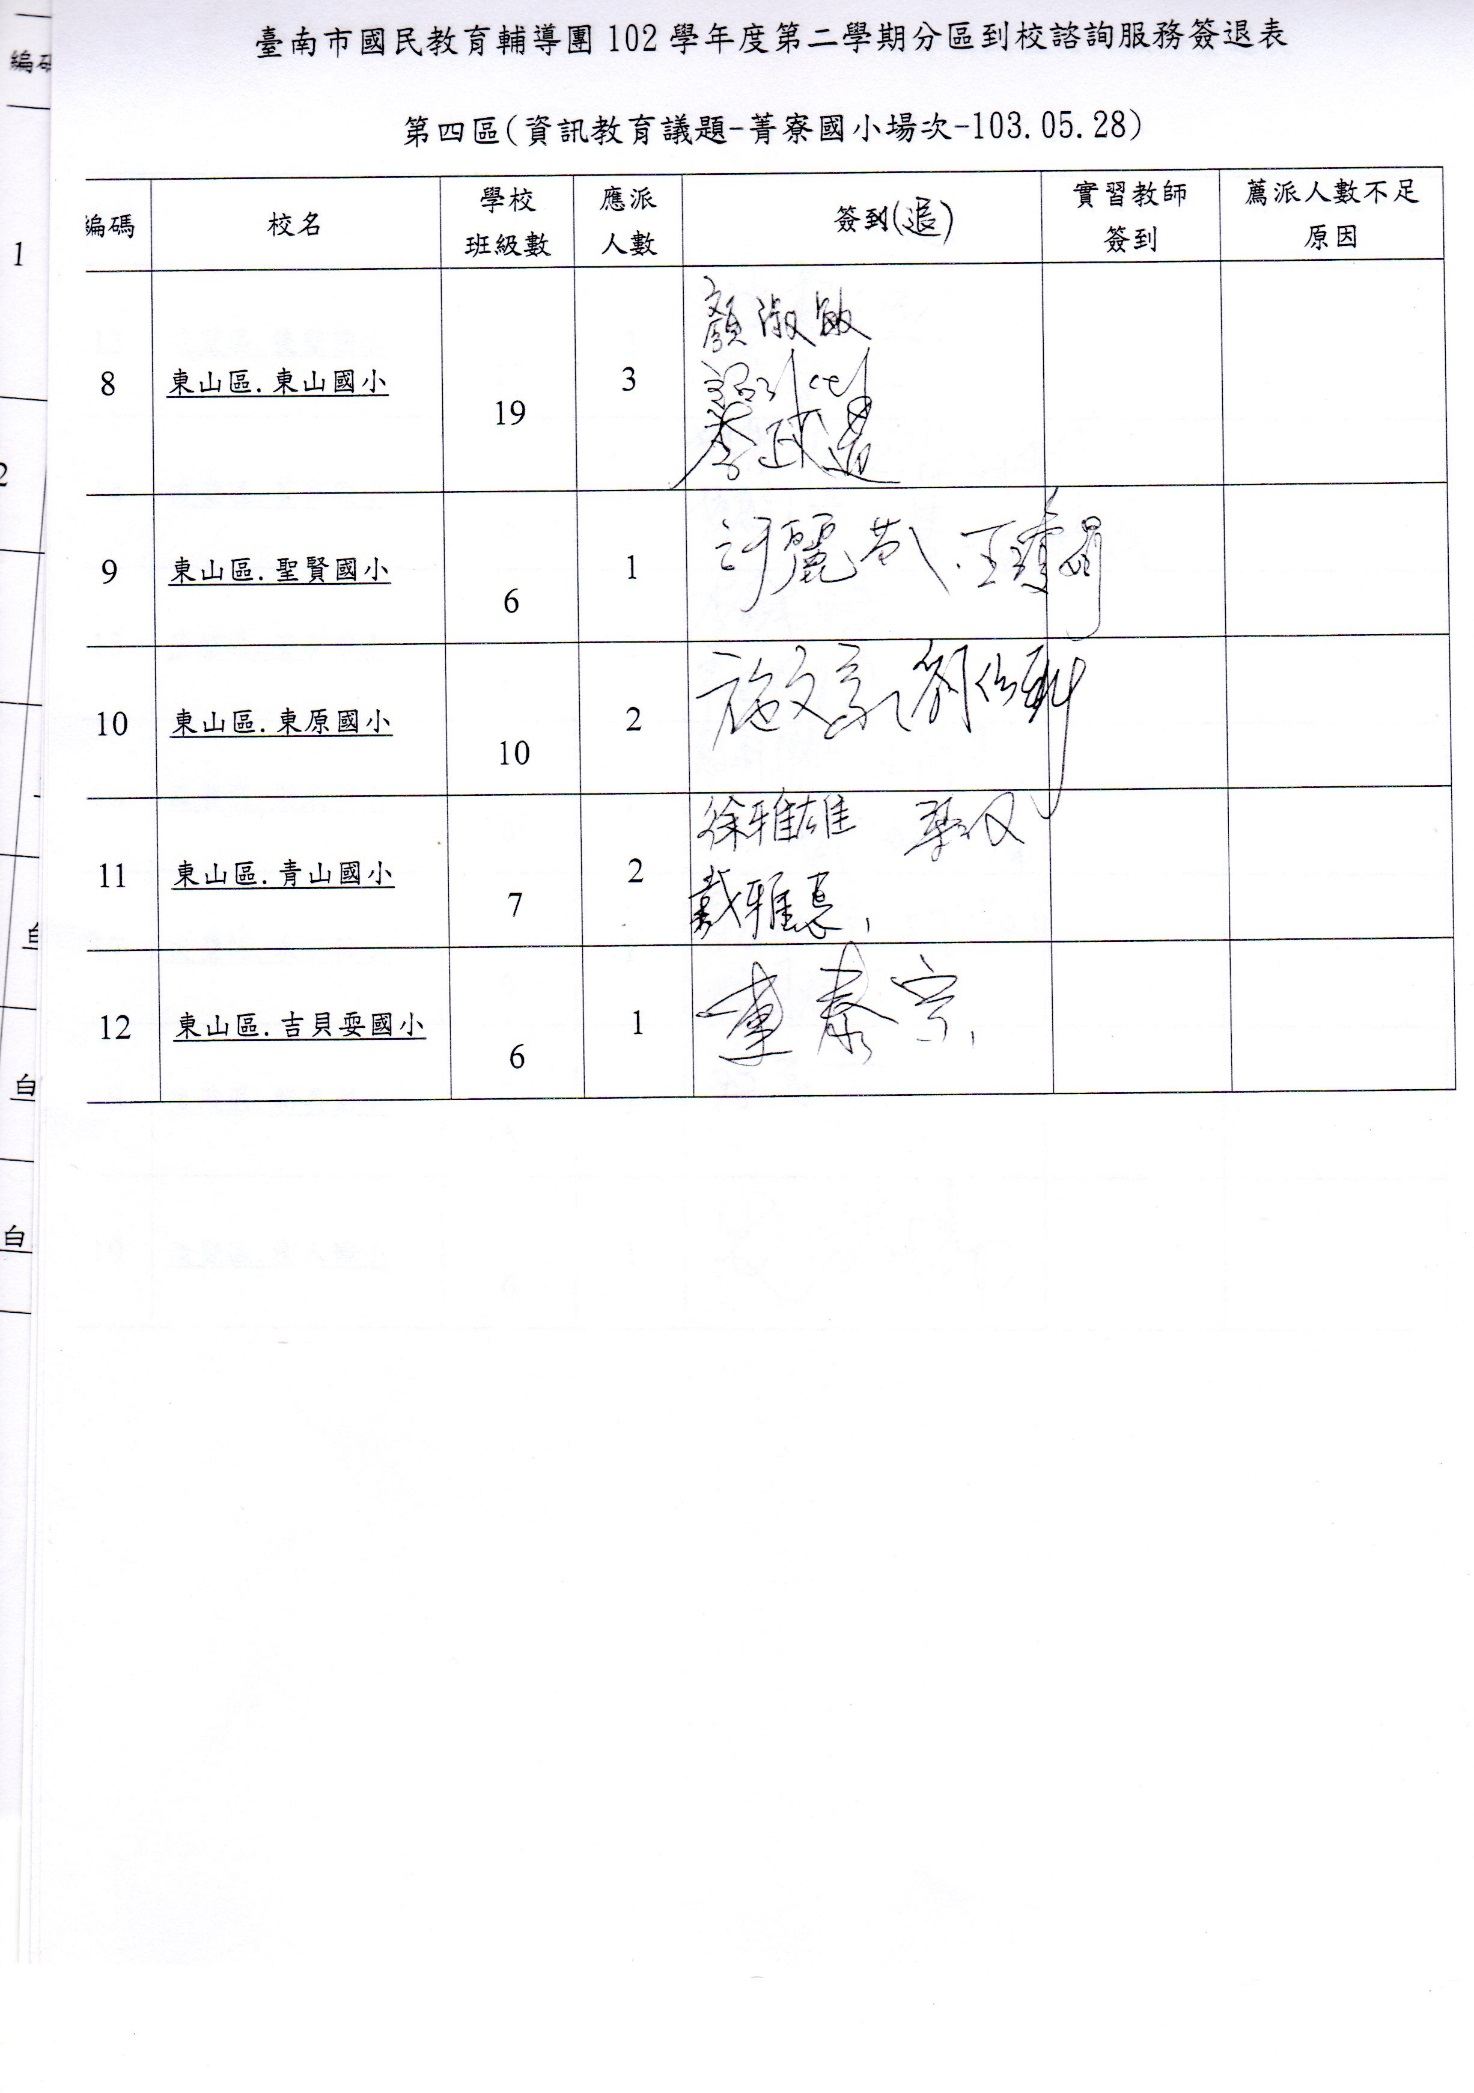 臺南市國民教育輔導團102學年度第二學期分區到校諮詢服務簽退表
第四區(資訊教育議題-菁寮國小場次-103.05.28)
編碼 校名 學校班級數 應派人數 簽到(退) 實習教師簽到 薦派人數不足原因
8 東山區.東山國小 19 3 顏淑敏
9 東山區.聖賢國小 6 1 許麗
10 東山區.東原國小 10 2 施文
11 東山區.青山國小 7 2 徐雅雄
戴雅
12 東山區.吉貝耍國小 6 1 泰宗
編碼
1
2
自
自
自